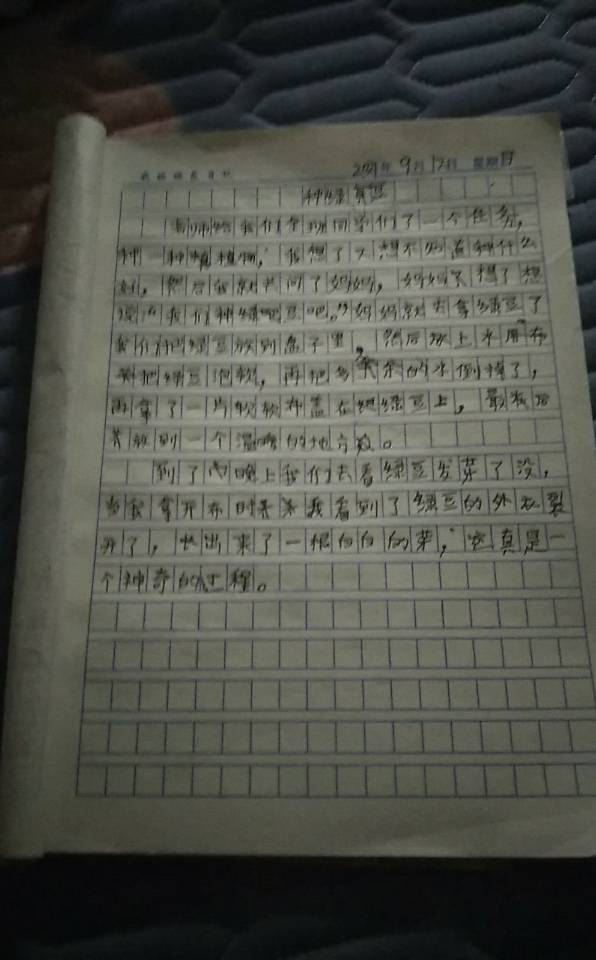 2021年9月12日 星期日
种绿豆
老师给我们全班同学们了一个任务,
种一种植植物,我想了又想不知道种什么
好,然后我就去问了妈妈,妈妈又想了想
说"我们种绿吧豆吧。"妈妈就去拿绿豆了
我们把绿豆放到盒子里,然后放上水用布
把绿豆泡软,再把多余的水倒掉了,
再拿了一片软软布盖在绿豆上,最后
放到一个温暖的地方。
到了晚上我们去看绿豆发芽了没,
当我拿开布时我看到了绿豆的外衣裂
开了,长出来了一根白白的芽,这真是一
个神奇的过程。